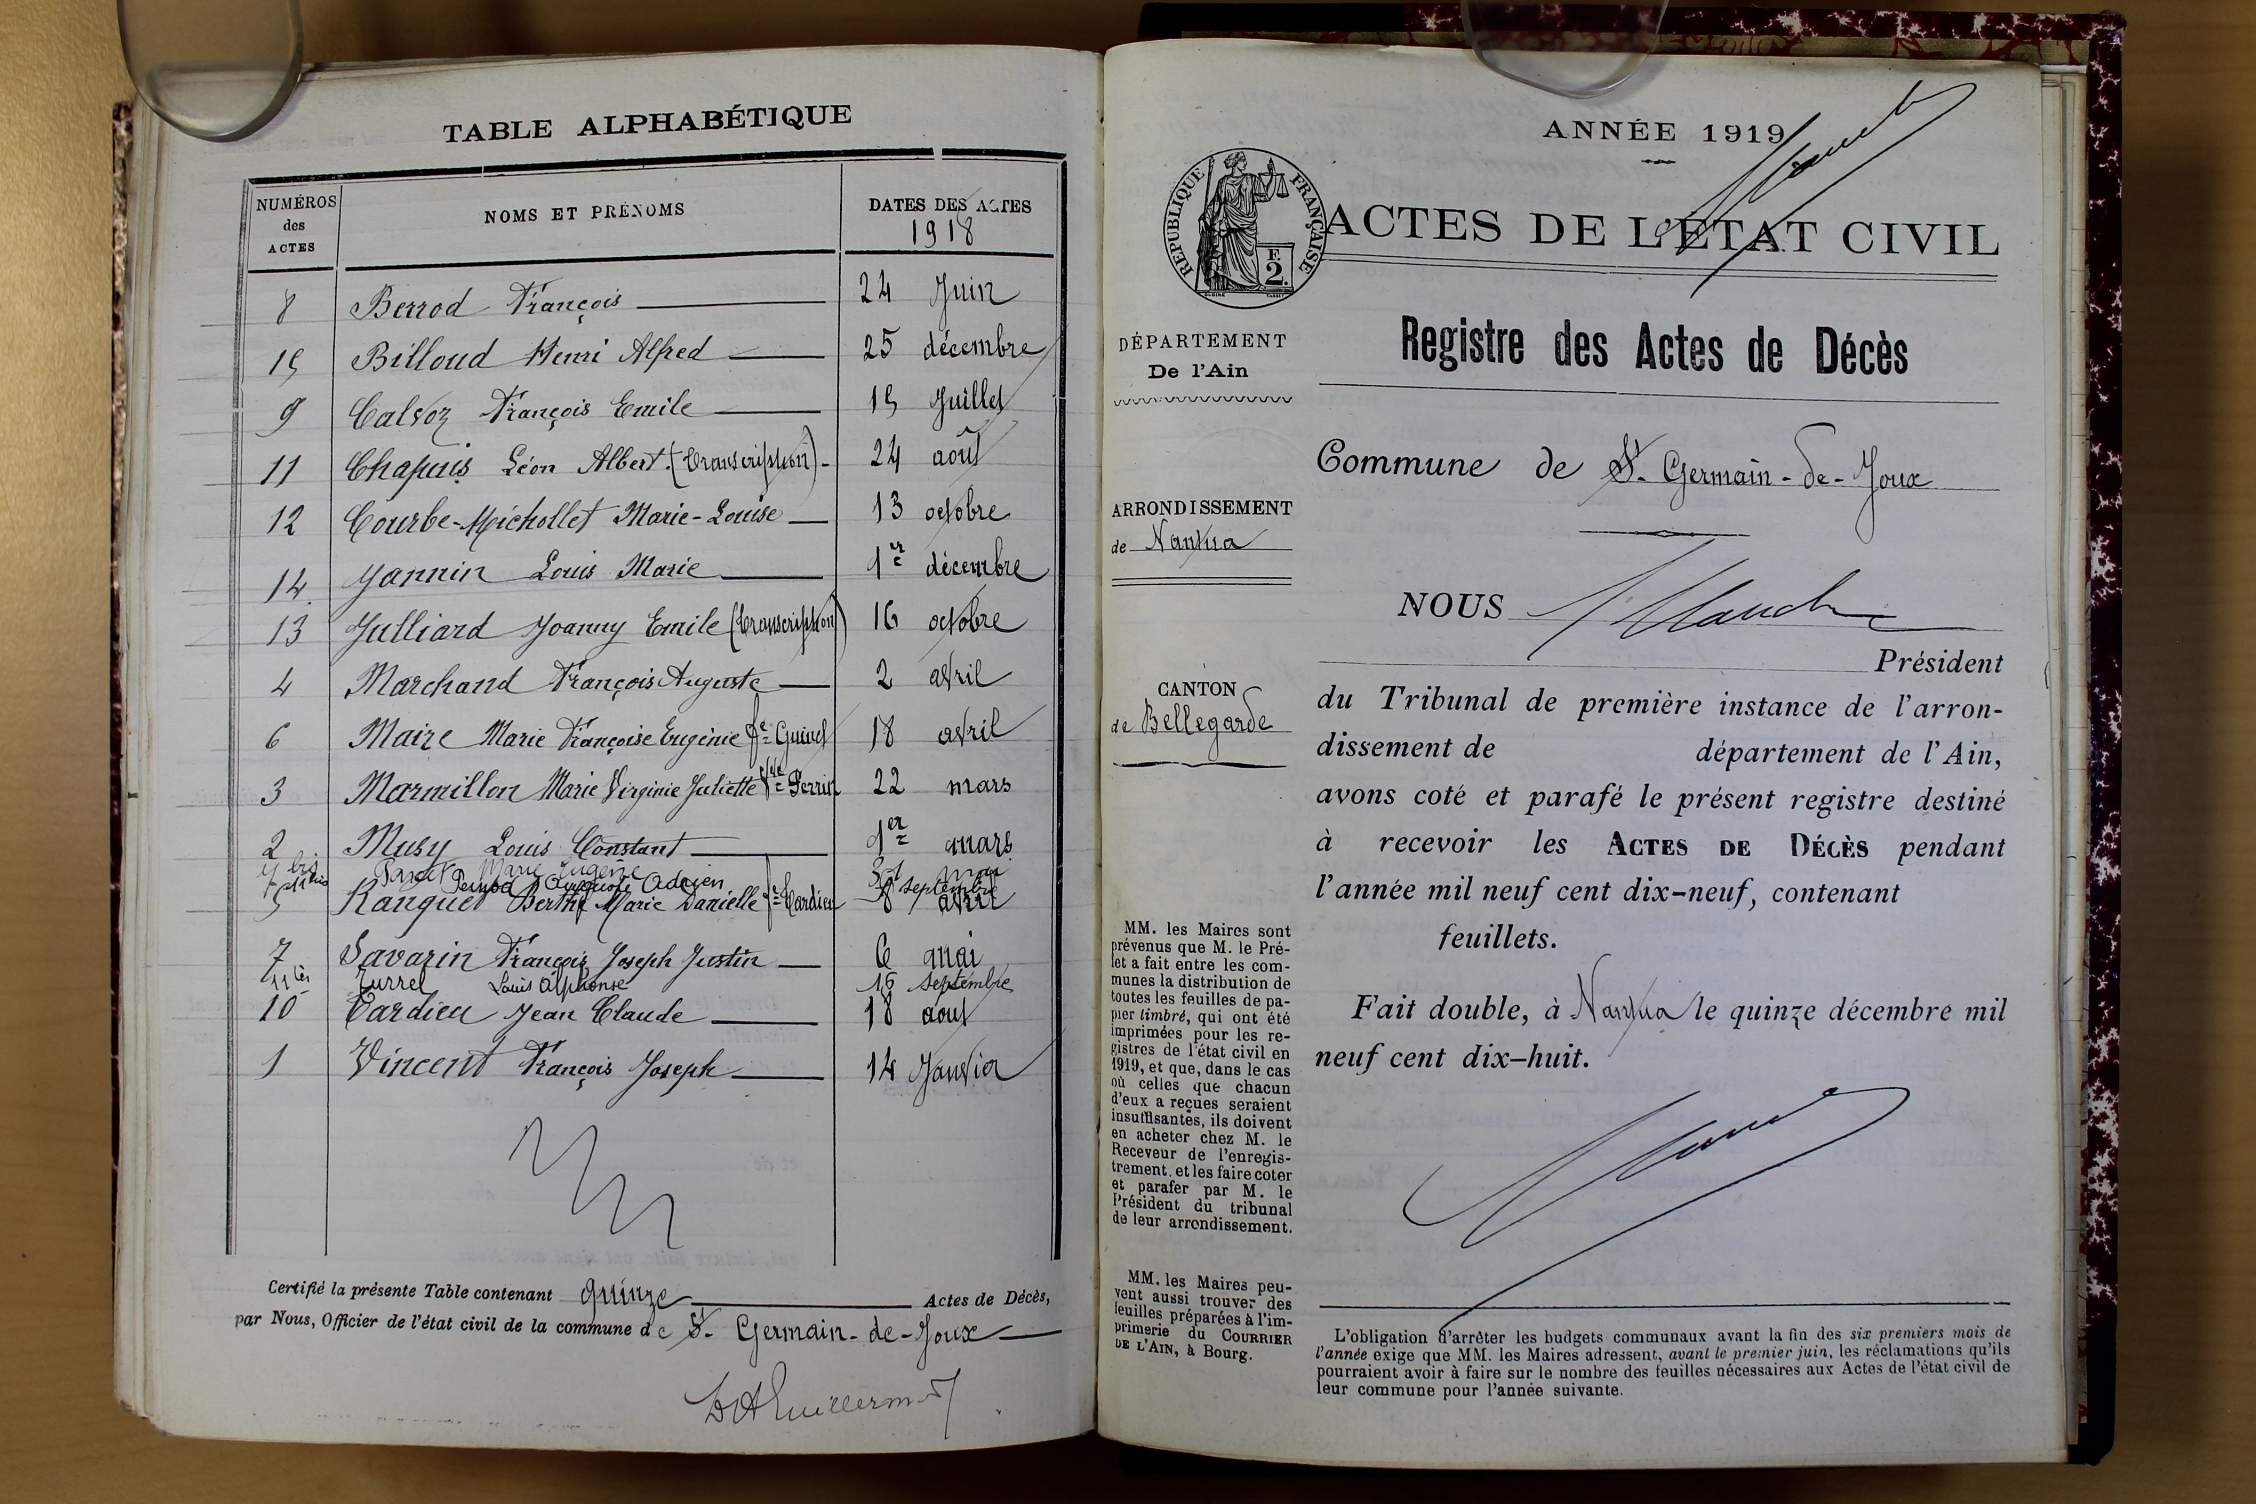 TABLE ALPHABÉTIQUE
NUMÉROS des ACTES
NOMS ET PRÉNOMS
DATES DES ACTES
1918
8 Berrod François 24 Juin
15 Billoud Henri Alfred 25 décembre
9 Calvoz François Emile 15 Juillet
11 Chapuis Léon Albert (Transcription) 24 août
12 Courbe-Michollet Marie-Louise 13 octobre
14 Jannin Louis Marie 1er décembre
13 Julliard Joanny Emile (Transcription) 16 octobre
4 Marchand François Auguste 2 avril
6 Maire Marie Françoise Eugénie fe Guinet 18 avril
3 Marmillon Marie Virginie Juliette Vve Perrin 22 mars
2 Musy Louis Constant 1er mars
7 bis Marie Eugène 31 mai
11 bis Auguste Adrien septembre
5 Ranguet Berthe Marie Danielle fe Tardieu 8 avril
7 Savarin François Joseph Justin 6 mai
11 ter Turrel Louis Alphonse 16 septembre
10 Tardieu Jean Claude 18 aout
1 Vincent François Joseph 14 Janvier
Certifié la présente Table contenant quinze Actes de Décès,
par Nous, Officier de l'état civil de la commune de St Germain-de-Joux
ANNÉE 1919
RÉPUBLIQUE FRANÇAISE
F.
2.
ACTES DE L'ÉTAT CIVIL
DÉPARTEMENT
De l'Ain
ARRONDISSEMENT
de Nantua
CANTON
de Bellegarde
MM. les Maires sont
prévenus que M. le Pré-
fet a fait entre les com-
munes la distribution de
toutes les feuilles de pa-
pier timbré, qui ont été
imprimées pour les re-
gistres de l'état civil en
1919, et que, dans le cas
où celles que chacun
d'eux a reçues seraient
insuffisantes, ils doivent
en acheter chez M. le
Receveur de l'enregis-
trement, et les faire coter
et parafer par M. le
Président du tribunal
de leur arrondissement.
MM. les Maires peu-
vent aussi trouver des
feuilles préparées à l'im-
primerie du COURRIER
DE L'AIN, à Bourg.
Registre des Actes de Décès
Commune de St Germain-de-Joux
NOUS
Président
du Tribunal de première instance de l'arron-
dissement de département de l'Ain,
avons coté et parafé le présent registre destiné
à recevoir les ACTES DE DÉCÈS pendant
l'année mil neuf cent dix-neuf, contenant
feuillets.
Fait double, à Nantua le quinze décembre mil
neuf cent dix-huit.
L'obligation d'arrêter les budgets communaux avant la fin des six premiers mois de
l'année exige que MM. les Maires adressent, avant le premier juin, les réclamations qu'ils
pourraient avoir à faire sur le nombre des feuilles nécessaires aux Actes de l'état civil de
leur commune pour l'année suivante.